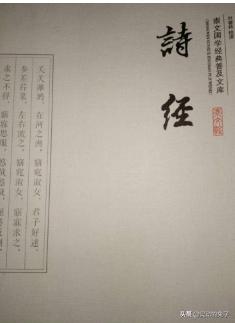 崇文国学经典普及文库
詩經
关关雎鸠，在河之洲。窈窕淑女，君子好逑。
参差荇菜，左右流之。窈窕淑女，寤寐求之。
求之不得，寤寐思服。悠哉悠哉，辗转反侧。
头条